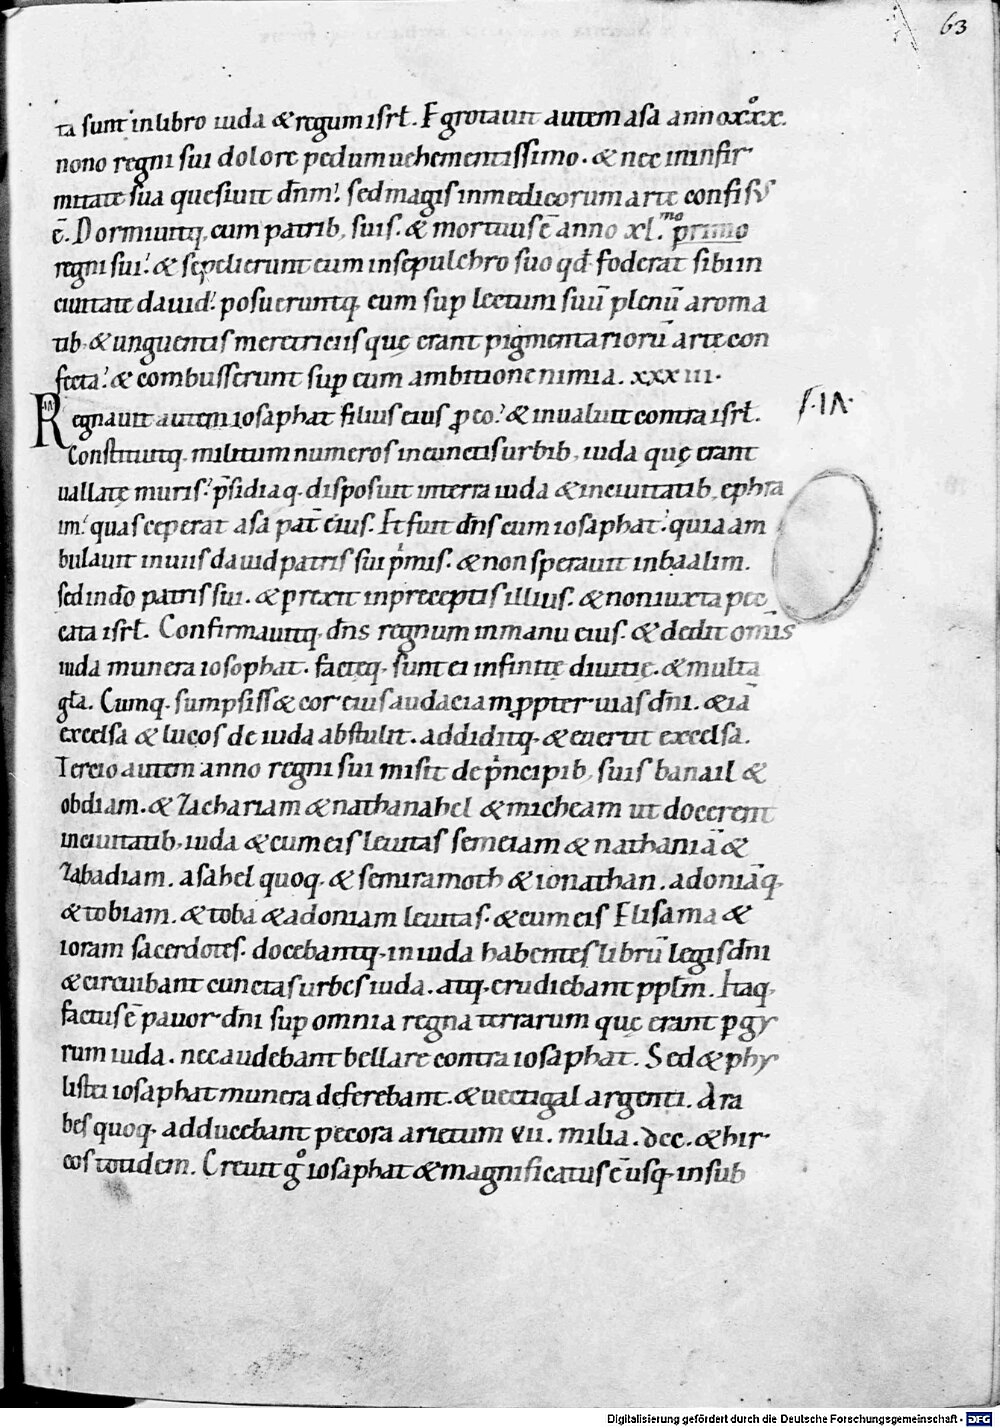 63
ta sunt in libro iuda & regum isrł. Egrotauit autem asa anno xxx.
nono regni sui dolore pedum uehementissimo. & nec in infir
mitate sua quesiuit dn̄m. sed magis in medicorum arte confisus
ē. Dormiuitq, cum patrib, suis. & mortuus ē anno xl.mo primo
regni sui. & sepelierunt eum in sepulchro suo qđ foderat sibi in
ciuitate dauid. posueruntq, eum sup lectum suū plenū aroma
tib, & unguentis meretriciis quę erant pigmentariorū arte con
fecta. & combusserunt sup eum ambitione nimia. xxxiii.
Regnauit autem iosaphat filius eius p eo. & inualuit contra isrł.
Constituitq, militum numeros in cunctis urbib, iuda quę erant
uallatę muris. p̄sidiaq, disposuit in terra iuda & in ciuitatib, ephra
im. quas ceperat asa pat̄ eius. Et fuit dn̄s cum iosaphat. quia am
bulauit in uiis dauid patris sui p̍mis. & non sperauit in baalim.
sed in dō patris sui. & prexit in preceptis illius. & non iuxta pec
cata isrł. Confirmauitq, dn̄s regnum in manu eius. & dedit om̄is
iuda munera iosophat. factęq, sunt ei infinitę diuitię. & multa
gła. Cumq, sumpsiss& cor eius audaciam ppter uias dn̄i. &iā
excelsa & lucos de iuda abstulit. addiditq, & euertit excelsa.
Tercio autem anno regni sui misit de p̍ncipib, suis banail &
obdiam. & Zachariam & nathanahel & micheam ut docerent
in ciuitatib, iuda & cum eis leuitas semeiam & nathaniā &
Zabadiam. asahel quoq, & semiramoth & ionathan. adoniāq,
& tobiam. & toba & adoniam leuitas. & cum eis Elisama &
ioram sacerdotes. docebantq, in iuda habentes librū legis dn̄i
& circuibant cunctas urbes iuda. atq, erudiebant ppłm. Itaq,
factus ē pauor dn̄i sup omnia regna terrarum quę erant p gy
rum iuda. nec audebant bellare contra iosaphat. Sed & phy
listei iosaphat munera deferebant. & uectigal argenti. Ara
bes quoq, adducebant pecora arietum vii. milia. dcc. & hir
cos totidem. Creuit g̊ iosaphat & magnificatus ē usq, in sub
Digitalisierung gefördert durch die Deutsche Forschungsgemeinschaft - DFG